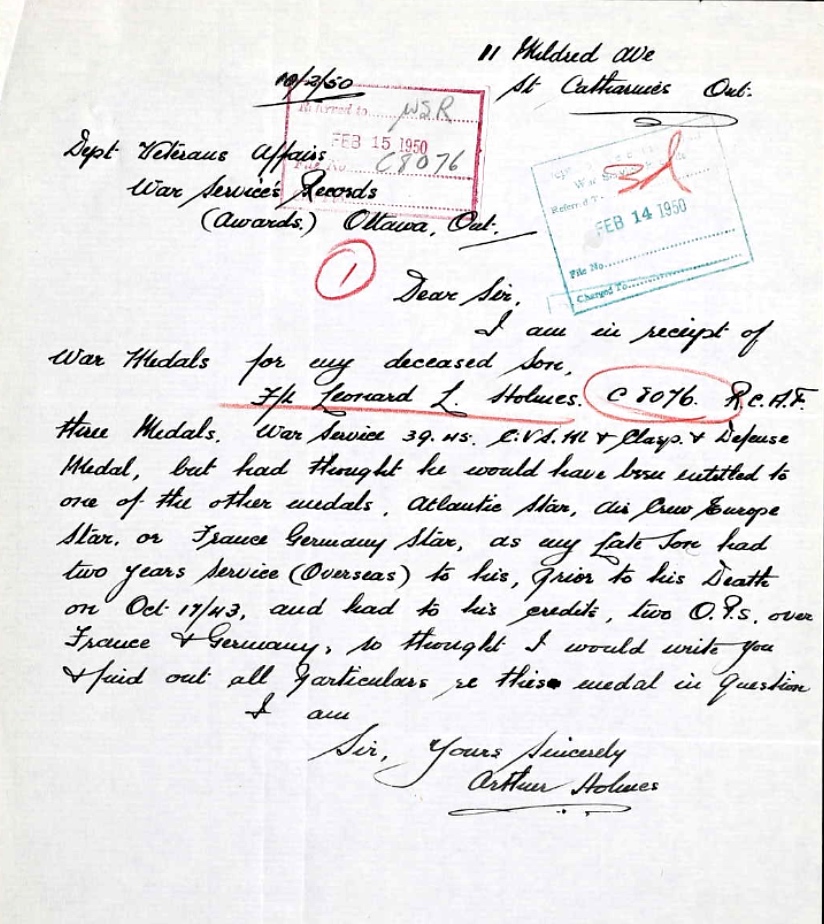 11 Mildred Ave
10/2/50
St Catharines Ont.
Referred to...... WSR
FEB 15 1950
File No... C8076
Dept Veterans Affairs
War Service's Records
(Awards.) Ottawa, Ont.
Referred T
FEB 14 1950
File No.
Charged To
1
Dear Sir,
I am in receipt of
War Medals for my deceased Son,
F/L Leonard L. Holmes. C 8076. R.C.A.F.
three Medals, War Service 39.45. C.V.S.M & Clasp. & Defense
Medal, but had thought he would have been entitled to
one of the other medals, Atlantic Star, Air Crew Europe
Star. or France Germany Star, as my Late Son had
two years Service (Overseas) to his, prior to his Death
on Oct 17/43, and had to his credits, two O.P.S. over
France & Germany, so thought I would write you
& find out all Particulars re these medal in Question
I am
Sir, Yours Sincerely
Arthur Holmes